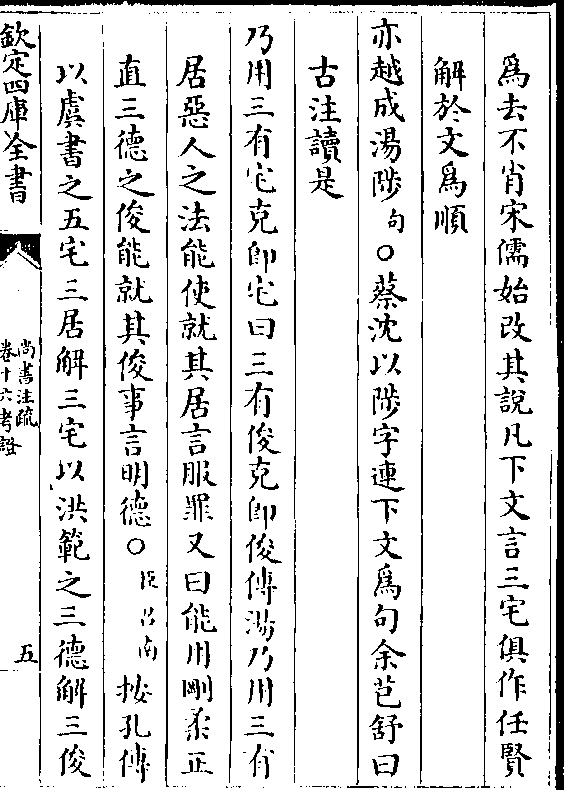 為去不肖宋儒始改其說凡下文言三宅俱作任賢
解於文為順
亦越成湯陟句○蔡沈以陟字連下文為句余芑舒曰
古注讀是
乃用三有宅克卽宅曰三有俊克卽俊傳湯乃用三有
居惡人之法能使就其居言服罪又曰能用剛柔正
直三德之俊能就其俊事言明德○臣召南按孔傳
以虞書之五宅三居解三宅以洪範之三德解三俊
欽定四庫全書
尚書注疏
卷十六考證
五